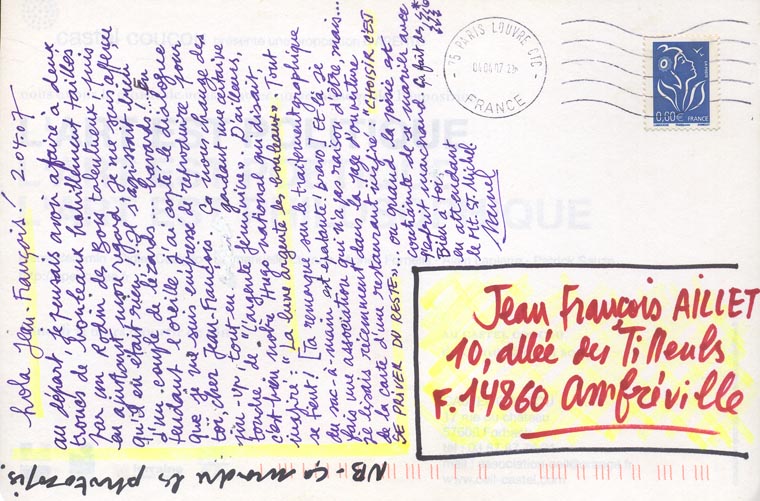 Hola Jean-François! 2.04.07
au départ, je pensais avoir affaire à deux
troncs de bouleaux habilement taillés
par un Rodin des Bois talentueux; puis
en ajustant mon regard, je me suis aperçu
qu'il en était rien; il s'agissait bien
d'un couple de lézards bavards... En
tendant l'oreille, j'ai capté le dialogue
que je me suis empressé de reproduire pour
toi cher Jean-François. Ça nous change des
tout en gardant une certaine
touche "L'argente féminine". D'ailleurs,
c'est bien notre Hugo national qui disait,
inspiré "La lune argente les bouleaux". Tout
se tient! [Ta remarque sur le traitement graphique
du sac-à-main est épatante; bravo] Et là je
fais une association qui n'a pas raison d'être, mais...
je lisais récemment dans la page d'ouverture
de la carte d'un restaurant inspiré "CHOISIR C'EST
SE PRIVER DU RESTE"... ou quand la panse est
contrainte de se pencher
l'esprit
Bien à toi
en attendant
le Mt. St. Michel.
NB - Ça mordu les photosgis.
75 PARIS LOUVRE CTC
04 04 07
FRANCE
LA POSTE
0,60€ FRANCE
Jean François AILLET
10, allée des Tilleuls
F. 14860 Amfréville
castel coucou
57600 Forbach